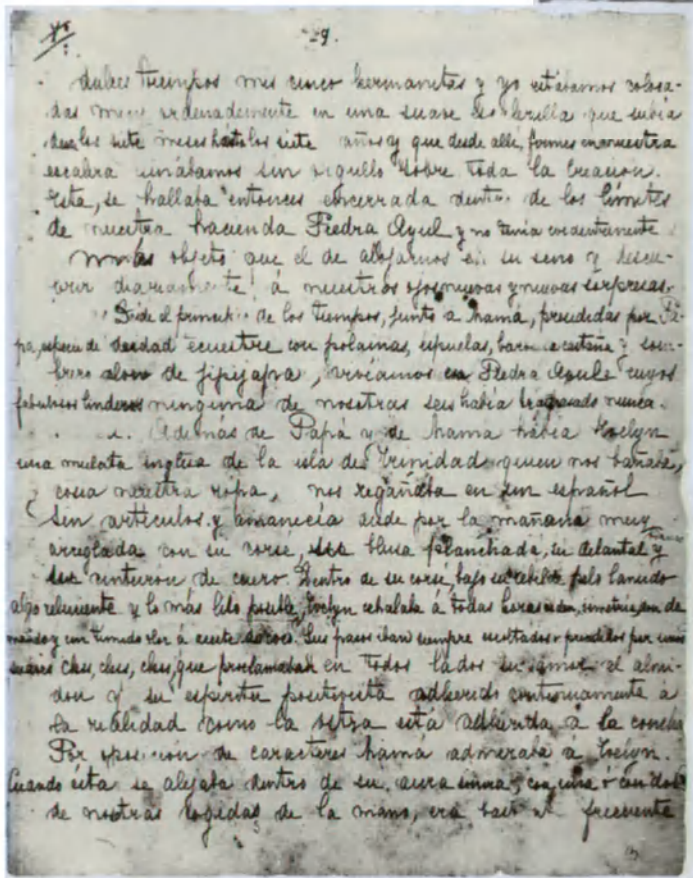 29.
dulces tiempos mis cinco hermanitas y yo estábamos coloca-
das muy ordenadamente en una suave escalerilla que subía
desde los siete meses hasta los siete años y que desde allí, firmes en nuestra
escalera reinábamos sin orgullo sobre toda la creación.
Esta, se hallaba entonces encerrada dentro de los límites
de nuestra hacienda Piedra Azul y no tenía evidentemente
más objeto que el de alojarnos en su seno y descu-
brir diariamente á nuestros ojos nuevas y nuevas sorpresas.
Desde el principio de los tiempos, junto a Mamá, presididas por Pa-
pá, especie de deidad ecuestre con polainas, espuelas, barba castaña y som-
brero alon de jipijapa, vivíamos en Piedra Azul cuyos
fabulosos linderos ninguna de nosotras seis había traspasado nunca.
Además de Papá y de Mamá había Evelyn
una mulata inglesa de la isla de Trinidad quien nos bañaba,
cosía nuestra ropa, nos regañaba en un español
sin artículos y amanecía desde por la mañana muy
arreglada con su corsé, su blusa planchada, su delantal y
su cinturón de cuero. Dentro de su corsé, bajo su rebelde pelo lanudo
algo reluciente y lo más liso posible, Evelyn exhalaba á todas horas orden, simetría, don de
mando y un tímido olor á aceite de coco. Sus pasos iban siempre escoltados o precedidos por unos
suaves chss, chss, chss, que proclamaban en todos lados su amor al almi-
dón y su espíritu positivista adherido continuamente á
la realidad como la ostra está adherida a la concha
Por oposición de caracteres Mamá admiraba a Evelyn.
Cuando ésta se alejaba dentro de su aura sonora, con una o con dos
de nosotras cogidas de la mano, era bastante frecuente